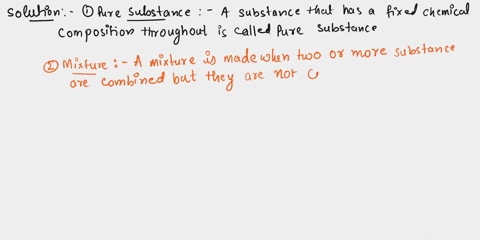 Solution:- ① Pure Substance :- A substance that has a fixed chemical
Composition throughout is called Pure Substance
② Mixture :- A mixture is made when two or more substance
are combined but they are not c